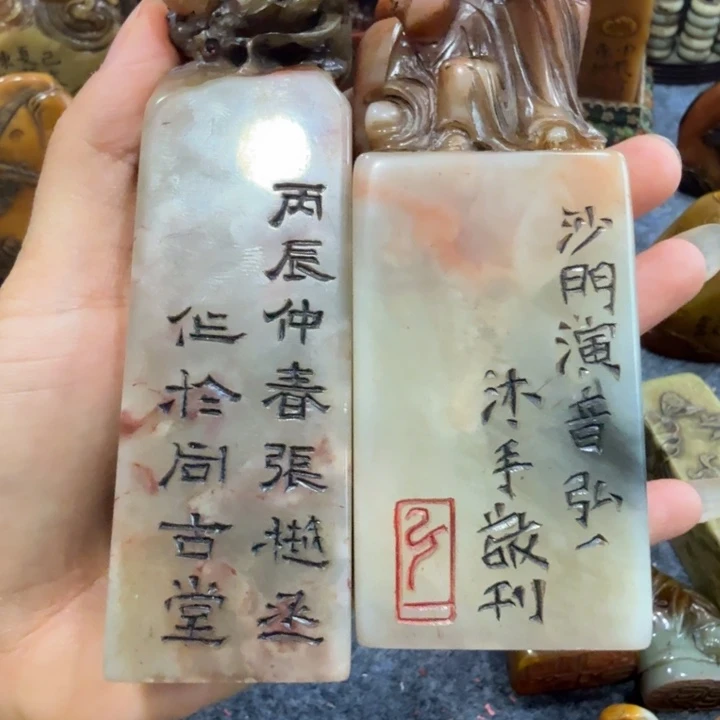 沙門演音弘一
沐手敬刊
丙辰仲春張樾丞
作於同古堂